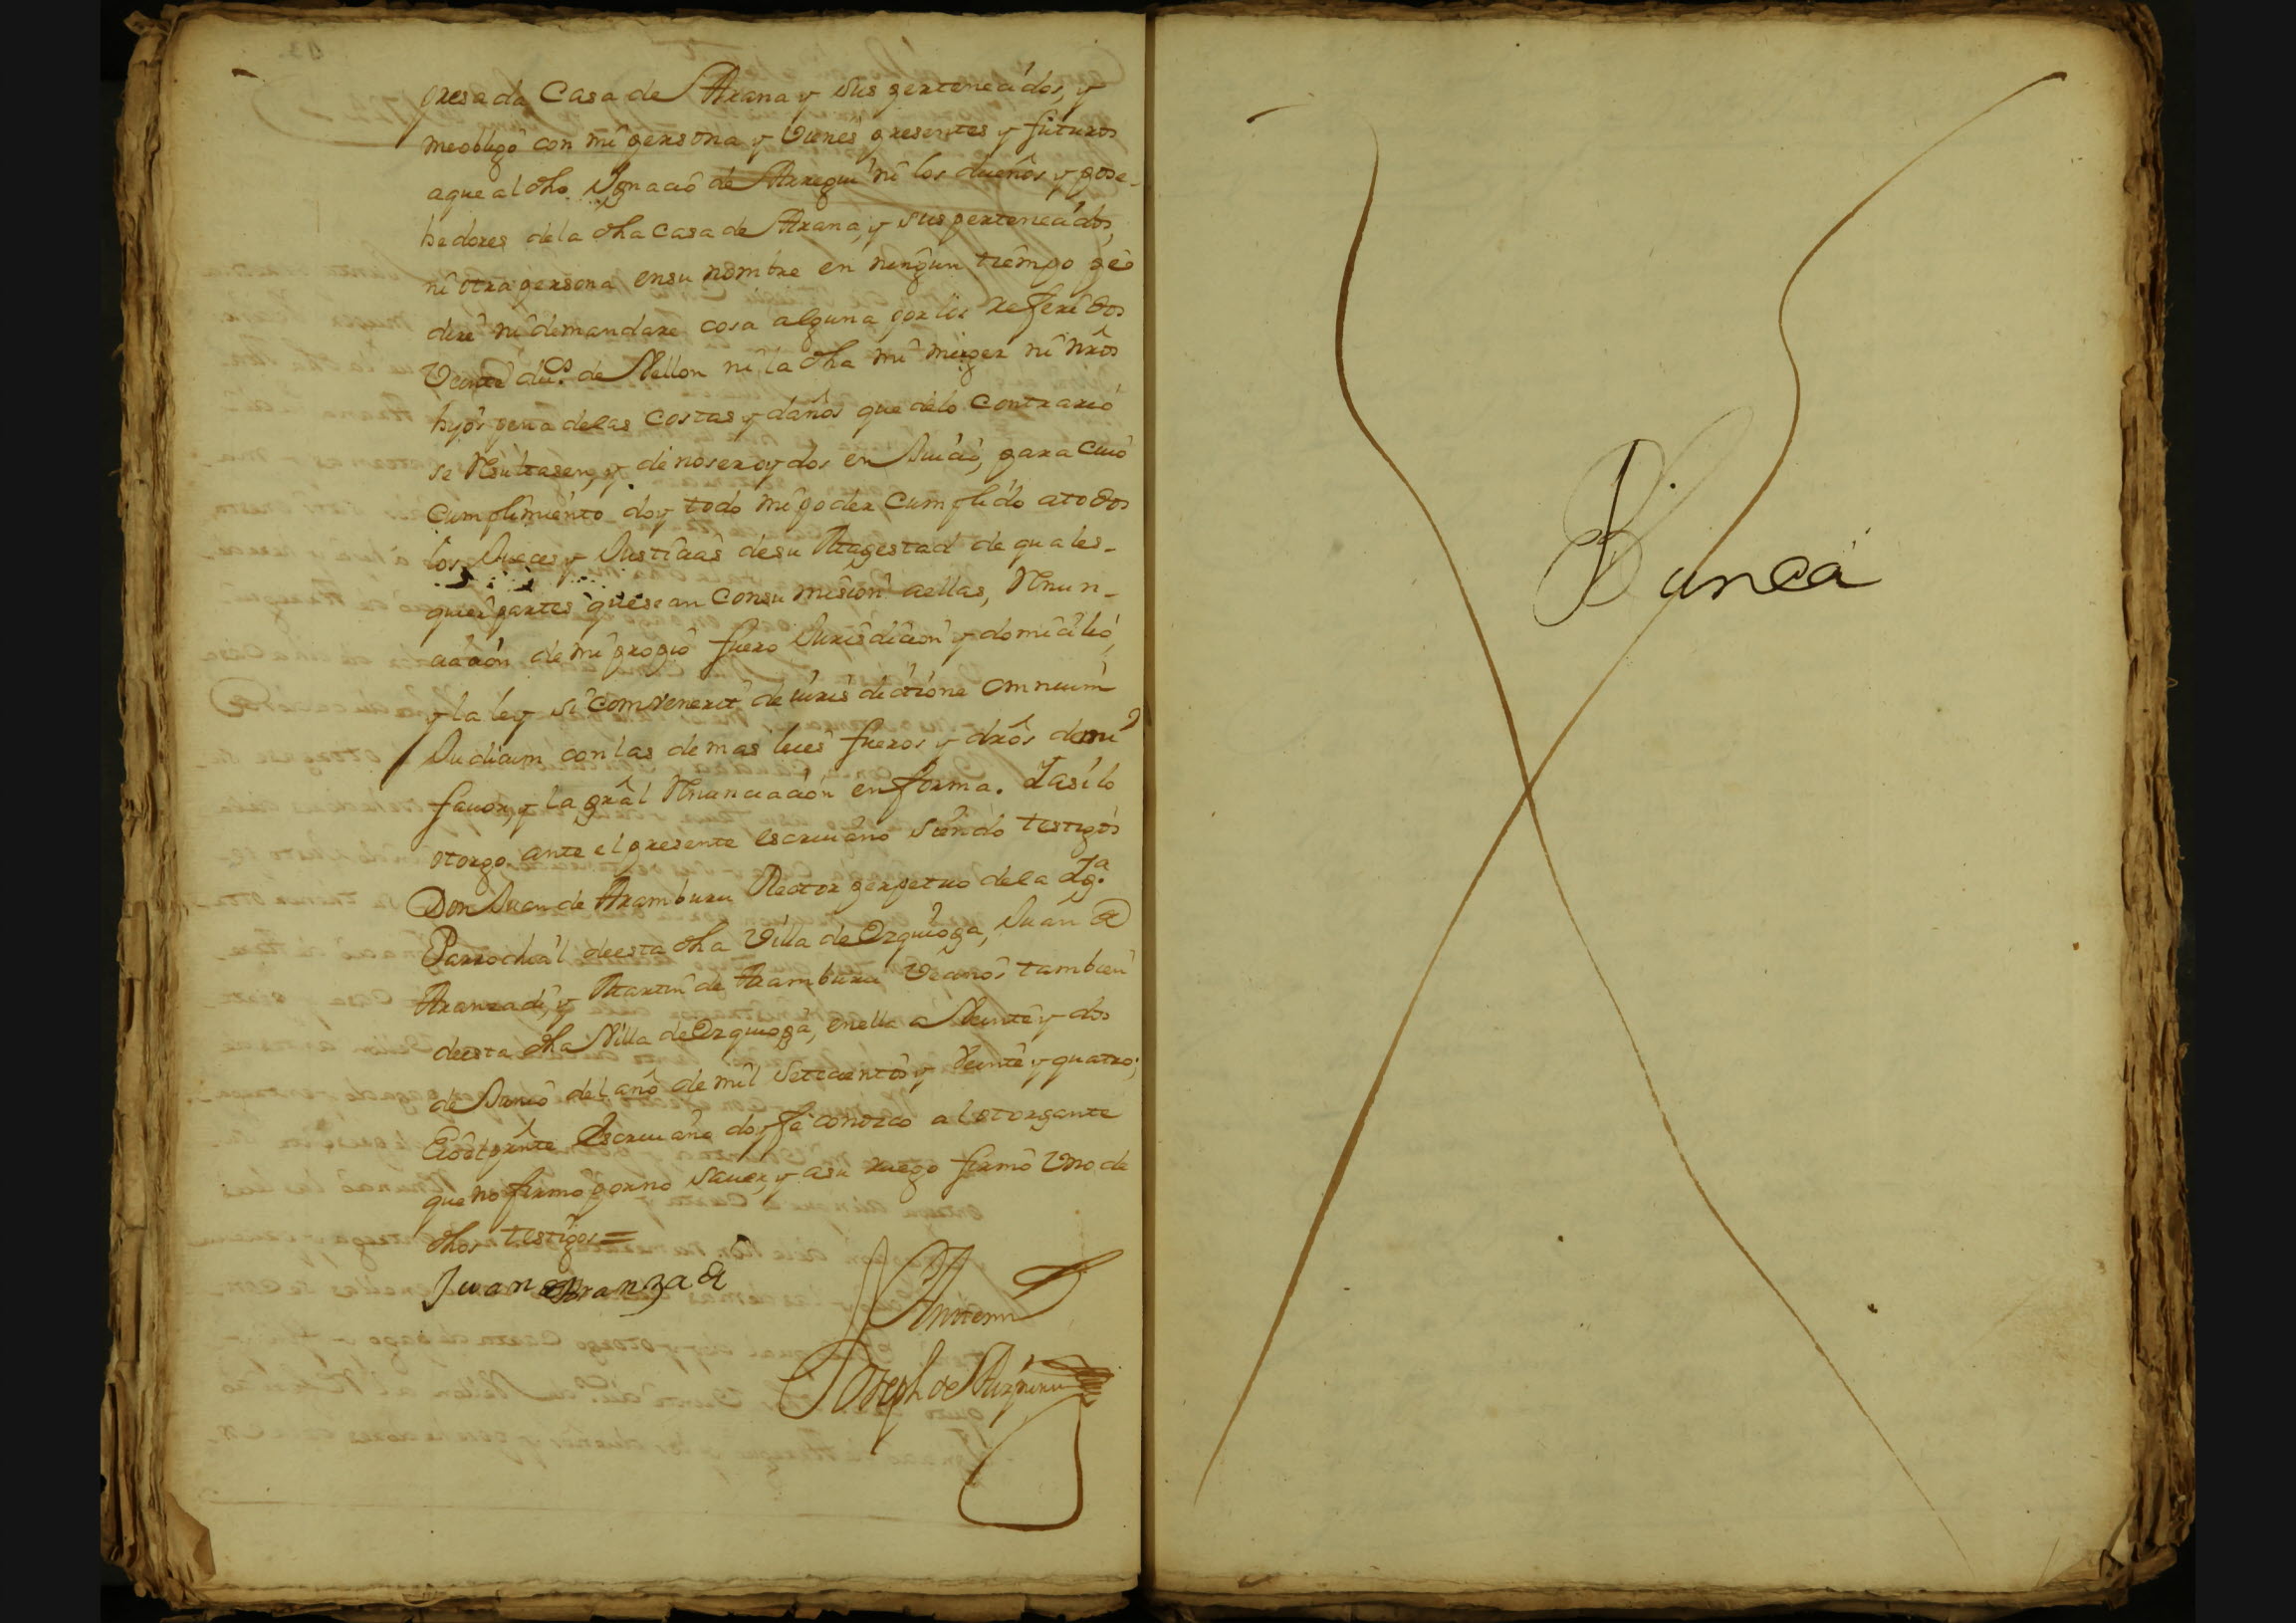 presada Casa de Arana y sus pertenecidos, y
me obligo con mi persona y vienes presentes y futuros
aque al dho Ygnacio de Arregui ni los dueños y pose-
hedores dela dha casa de Arana, y sus pertenecidos,
ni otra persona ensu nombre en ningun tiempo pe
dire ni demandare cosa alguna por los referidos
Veinte du.s de Vellon ni la dha mi muger ni nrôs
hijos pena delas costas y daños que delo contrario
se Resultasen, y de noser oydos en Juicio, para cuio
cumplimiento doy todo mi poder cumplido atodos
los Jueces y Justicias desu Magestad de quales-
quier partes que sean consu mision aellas, Renun-
ciacion de mi propio fuero Jurisdicion y domicilio,
y la ley si convenerit de iurisdictione omnium
Judicum con las demas leies fueros y drôs de mi
fauor, y la grâl Renunciacion en forma. Y asi lo
otorgo ante el presente escriuano siendo testigos
Don Juan de Aramburu Rector perpetuo dela Yg.a
Parrochial deesta dha Villa de Ezquioga, Juan de
Aranzadi, y Martin de Aramburu Vecinos tambien
deesta dha Villa de Ezquioga, enella a Veinte y dos
de Junio del año de mil setecientos y Veinte y quatro;
E io el prnte Escriuano doy fe conozco al otorgante
que no firmo por no sauer, y asu ruego firmo Uno de
dhos testigos =
Juan de Aranzadi
Antemi
Joseph de
Blanca